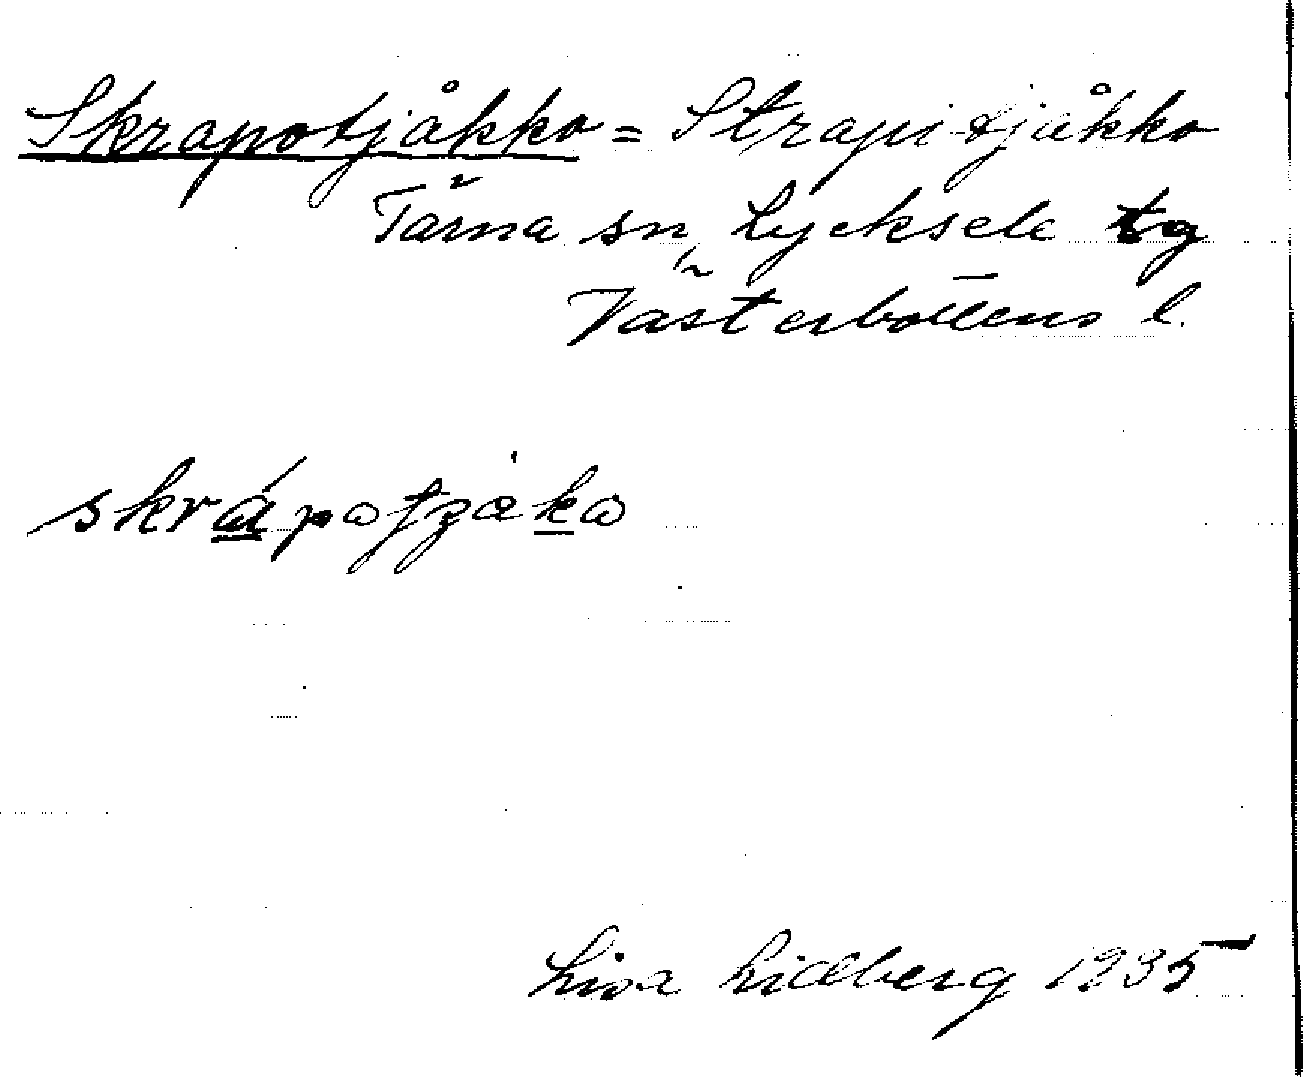 Skrapotjåkko = Strapitjåkko
Tärna sn, Lycksele tg
Västerbottens l.
skrápatjåka
Lisa Lidberg 1935